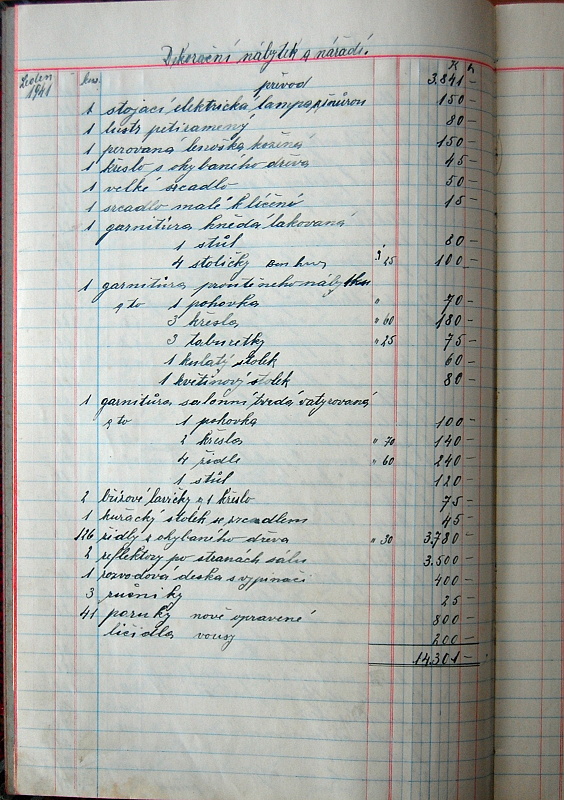 Dekorační nábytek a nářadí.
K h
Leden 1941 kus.
převod 3.841 –
1 stojací elektrická lampa, šňůrou 150 –
1 lustr pětiramený 80 –
1 perovaná lenoška kožená 150 –
1 křeslo s ohybaného dřeva 45 –
1 velké srcadlo 50 –
1 srcadlo malé k líčení 15 –
1 garnitůra hnědá lakovaná
1 stůl 80 –
4 stoličky á 25 100 –
1 garnitůra proutěného nábytku
a to 1 pohovka " 70 –
3 křesla " 60 180 –
3 taburetky " 25 75 –
1 kulatý stolek 60 –
1 květinový stolek 80 –
1 garnitůra salonní tvrdá vatyrovaná
a to 1 pohovka 100 –
2 křesla " 70 140 –
4 židle " 60 240 –
1 stůl 120 –
2 břízové lavičky a 1 křeslo 75 –
1 kuřácký stolek se zrcadlem 45 –
126 židlý z ohybaného dřeva " 30 3.780 –
2 reflektory po stranách sálu 3.500 –
1 rozvodová deska s vypínači 400 –
3 ručníky 25 –
41 paruky nově opravené 800 –
líčidla vousy 200 –
14.301 –